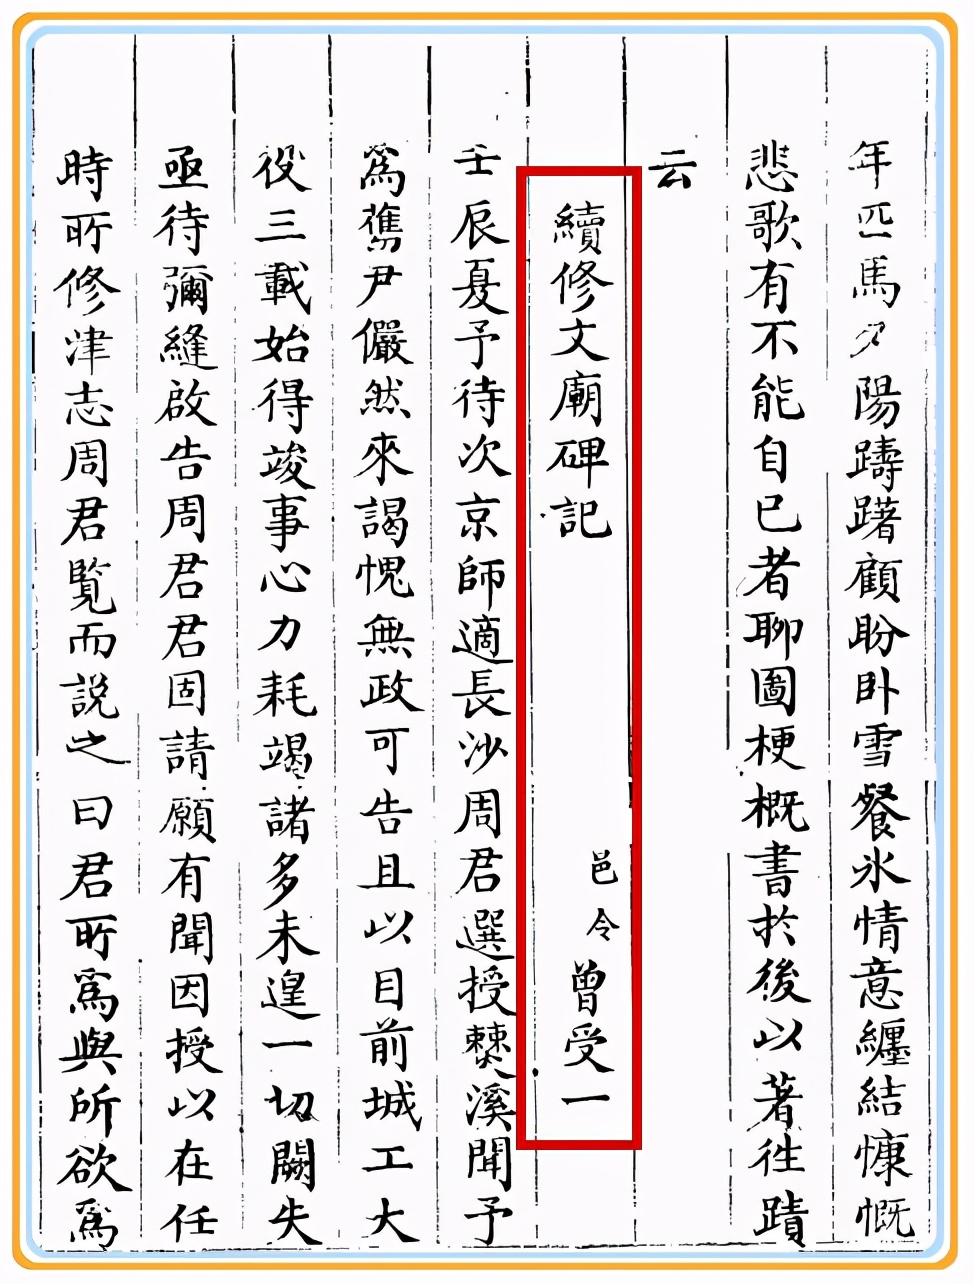 年匹馬夕陽躊躇顧盼卧雪餐氷情意纏結慷慨
悲歌有不能自已者聊圖梗概書於後以著徃蹟
云
續修文廟碑記 邑令曾受一
壬辰夏予待次京師適長沙周君選授僰溪聞予
為舊尹儼然來謁愧無政可告且以目前城工大
役三載始得竣事心力耗竭諸多未遑一切闕失
亟待彌縫啟告周君君固請願有聞因授以在任
時所修津志周君覧而説之曰君所為與所欲為